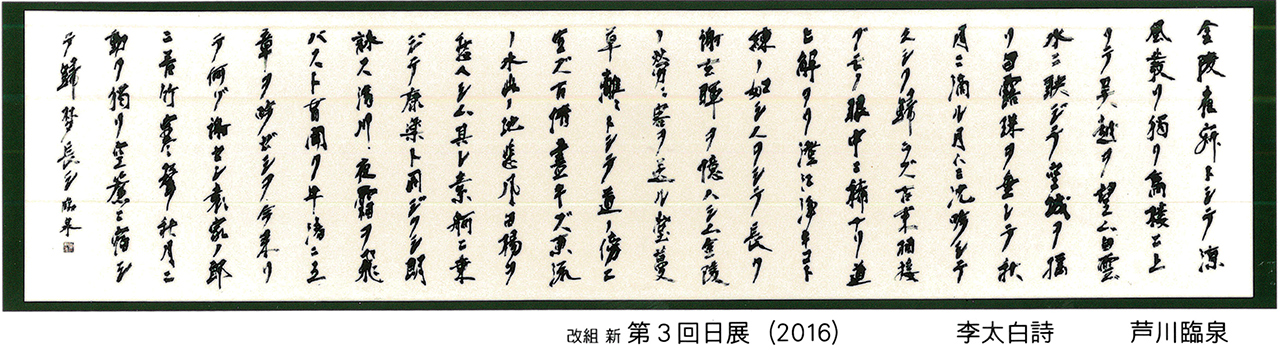 金陵夜寂トシテ涼
風發リ獨リ高樓ニ上
リテ呉越ヲ望ム白雲
水ニ映ジテ空城ヲ揺
リ白露珠ヲ垂レテ秋
月ニ滴ル月下ニ沈吟シテ
久シク歸ラズ古来相接
グモノ眼中ニ稀ナリ道
ヒ解タリ澄江浄キコト
練ノ如シ人ヲシテ長ク
謝玄暉ヲ憶ハシム金陵
ノ勞々客ヲ送ル堂蔓
草離々トシテ道ノ傍ニ
生ズ古情盡キズ東流
ノ水此ノ地悲風白楊ヲ
愁ヘシム我レ素舸ニ乗
ジテ康楽ト同ジクシ朗
詠ス清川ノ夜霜ヲ飛
バスト昔聞ク牛渚ニ五
章ヲ吟ゼシヲ今来リ
テ何ゾ謝セン袁家ノ郎
ニ苦竹寒聲秋月ニ
動ク獨リ空簾ニ宿シ
テ歸夢長シ 臨泉
改組 新 第3回日展 (2016) 李太白詩 芦川臨泉